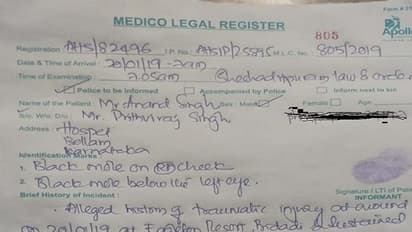 Form # 21
MEDICO LEGAL REGISTER
805
Apollo
Registration AHS/82496 I.P. No. AHSIP/25895 M.L.C. No. 805/2019
Date & Time of Arrival 20/01/19 - 7am
Time of Examination 7.05am law & order
Police to be informed Accompenied by Police Inform next to kin
Name of the Patient Mr Anand Singh Sex: Male Female Age
S/o, W/o, D/o Mr. Prithviraj Singh
Address: Hospet
Bellary
Karnataka
Identification Marks
1. Black mole on cheek
2. Black mole below left eye.
Signature / LTI of Patient
INFORMANT
Brief History of Incident:
Alleged history of traumatic injury at around
on 20/01/19 at Eagleton Resort, Bidadi & sustained